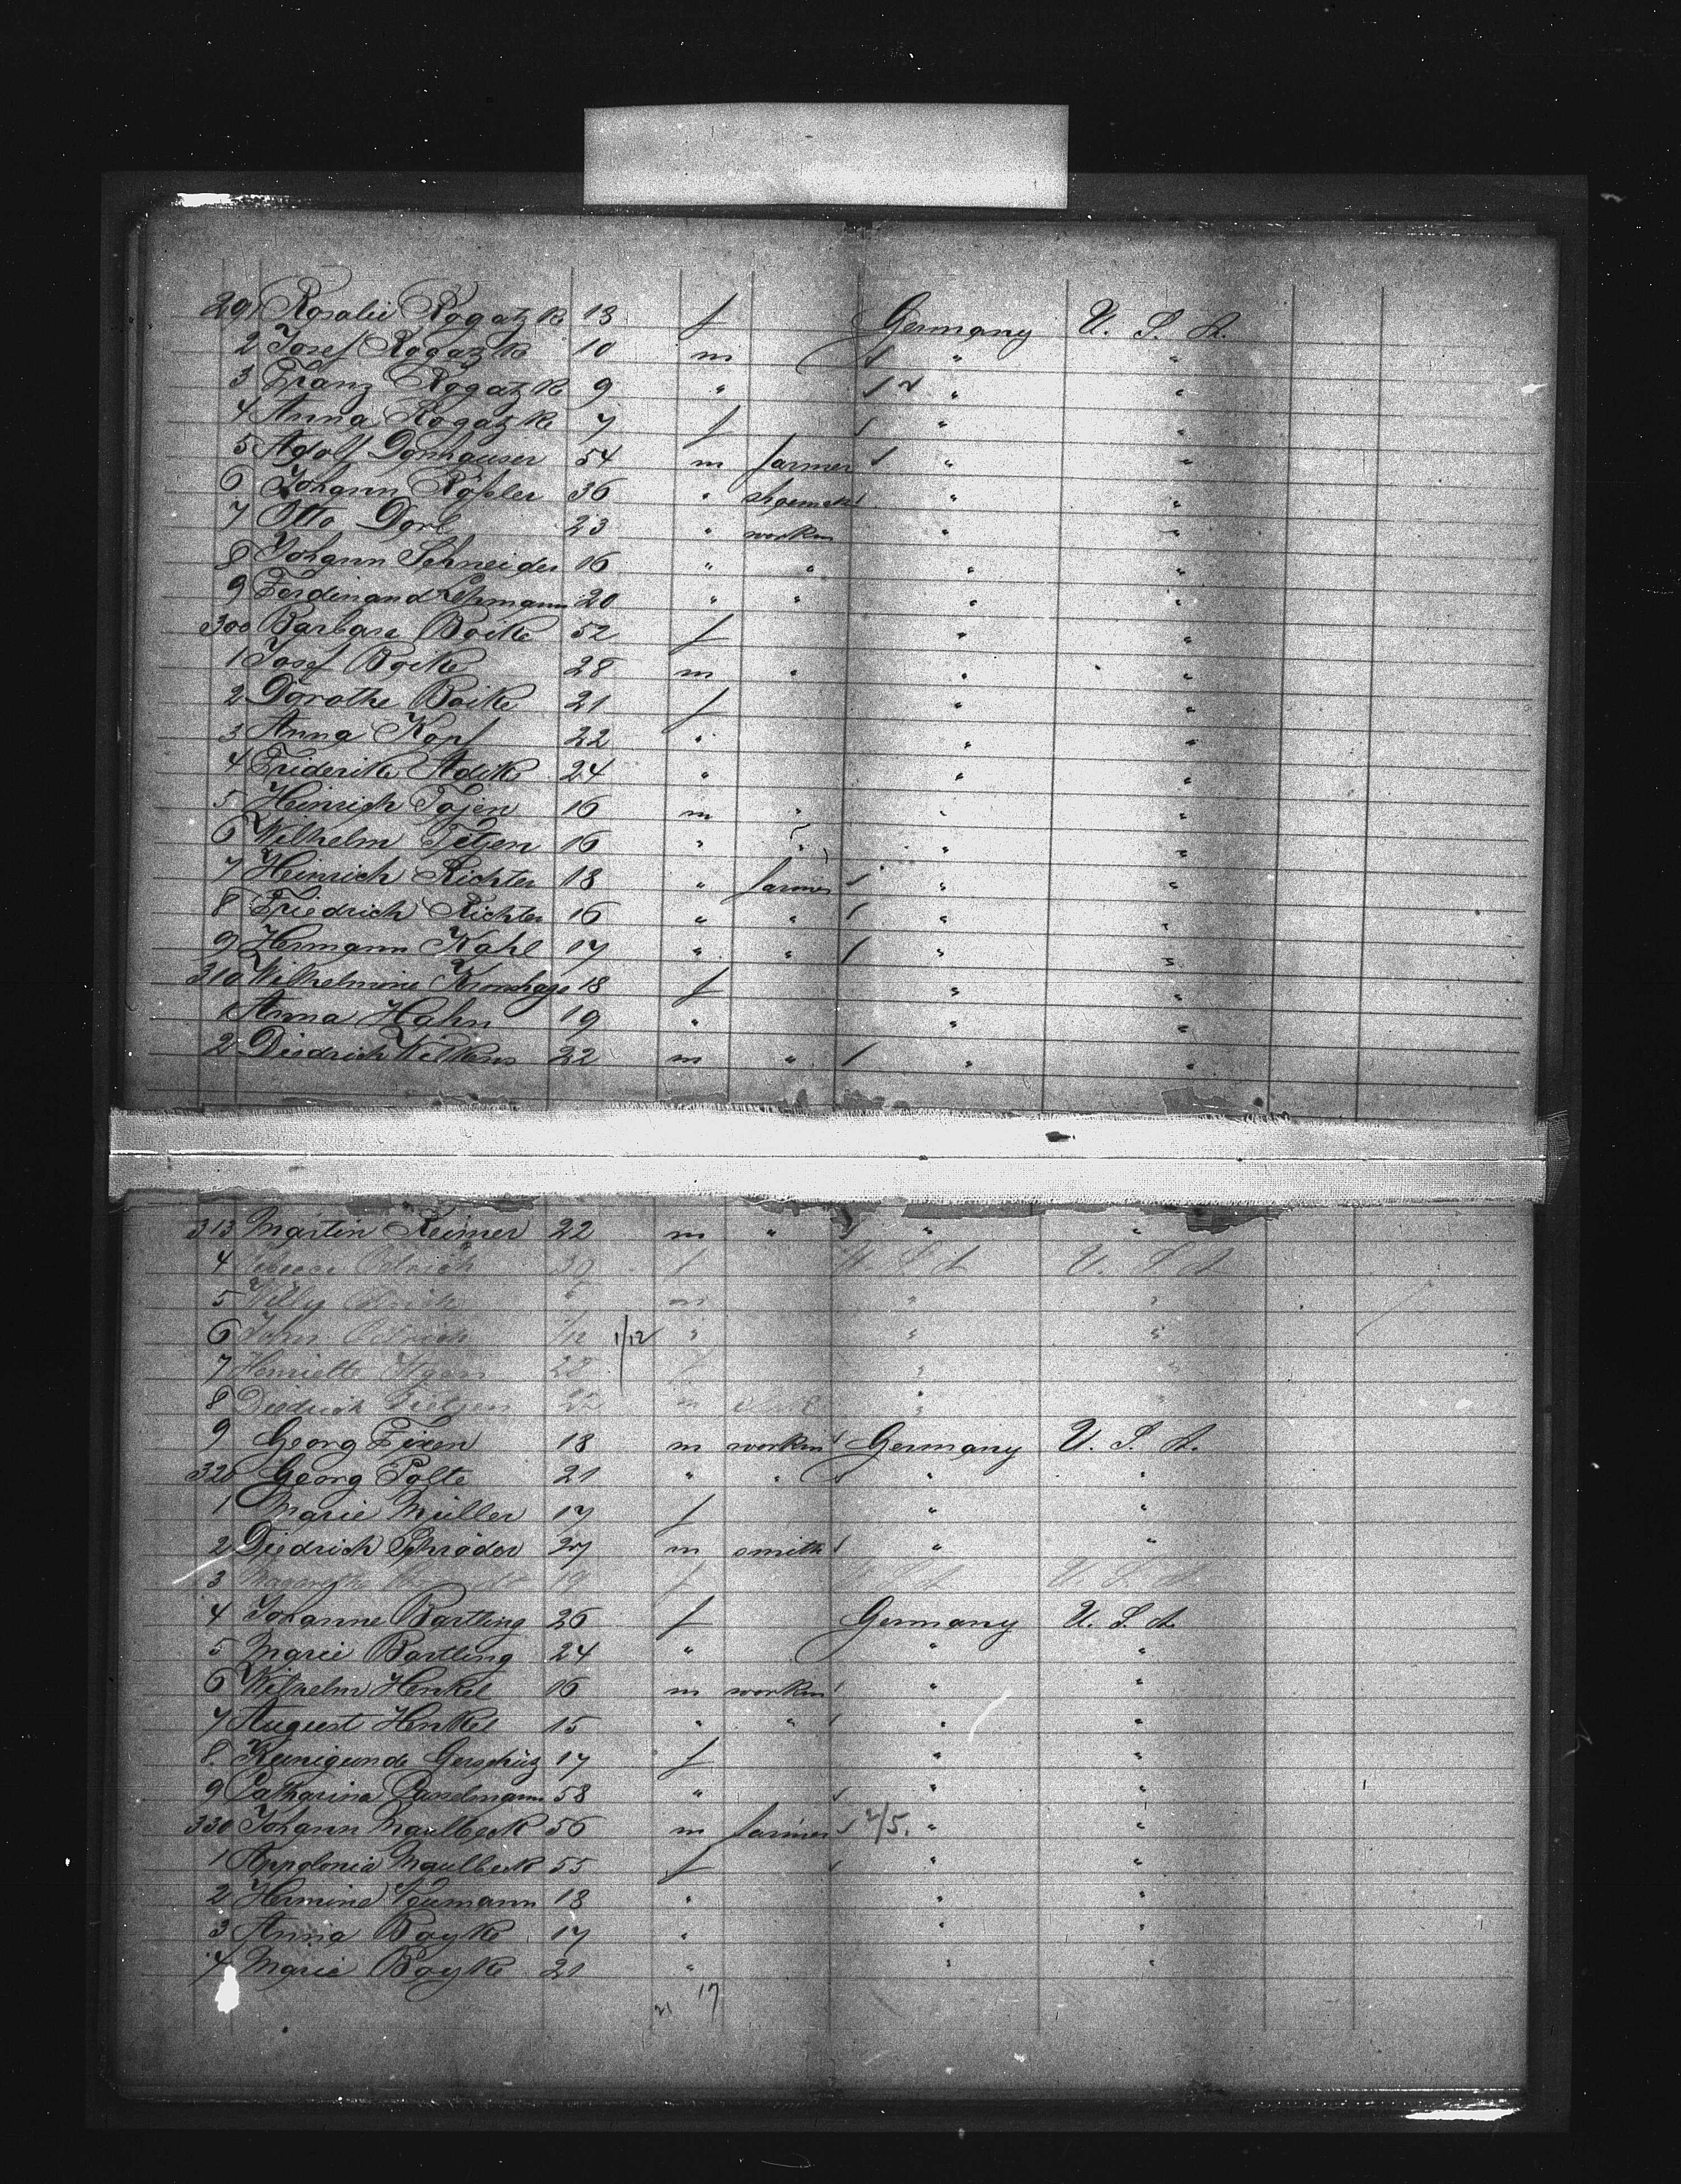 291 Rosalie Rogatzke 13 f Germany U. S. A.
2 Josef Rogatzke 10 m " "
3 Franz Rogatzke 9 " " "
4 Anna Rogatzke 7 f " "
5 Adolf Donhauser 54 m farmer " "
6 Johann 36 " " "
7 Otto Dorl 23 " workm " "
8 Johann Schneider 16 " " " "
9 Ferdinand Lehmann 20 " " " "
300 Barbara Boike 52 f " "
1 Josef Boike 28 m " " "
2 Dorothe Boike 21 f " "
3 Anna Kopf 22 " " "
4 Friderike Adike 24 " " "
5 Heinrich Tojen 16 m " " "
6 Wilhelm Tietjen 16 " " " "
7 Heinrich Richter 18 " farmer " "
8 Friedrich Richter 16 " " " "
9 Hermann Kahl 17 " " " "
310 Wilhelmine Kronshage 18 f " "
1 Anna Hahn 19 " " "
2 Diedrich Wilkens 22 m " " "
313 Martin Reimer 22 m " " "
4 39 f U. S. A U. S. A
5 Willy m " "
6 John 1/12 " " "
7 Henriette 22 f " "
8 Diedrich Tietjen 22 m " "
9 Georg Fixen 18 m workm Germany U. S. A.
320 Georg Polte 21 " " " "
1 Marie Müller 17 f " "
2 Diedrich Schröder 27 m smith " "
3 19 f U. S. A U. S. A
4 Johanne Bartling 26 f Germany U. S. A.
5 Marie Bartling 24 " " "
6 Wilhelm Henkel 16 m workm " "
7 August Henkel 15 " " " "
8 Kunigunde Gerschütz 17 f " "
9 Catharina Landmann 58 " " "
330 Johann Maulbeck 56 m farmer 2/5. " "
1 Appolonia Maulbeck 55 f " "
2 Hermine Neumann 18 " " "
3 Anna Boyke 17 " " "
4 Marie Boyke 21 " " "
21 17